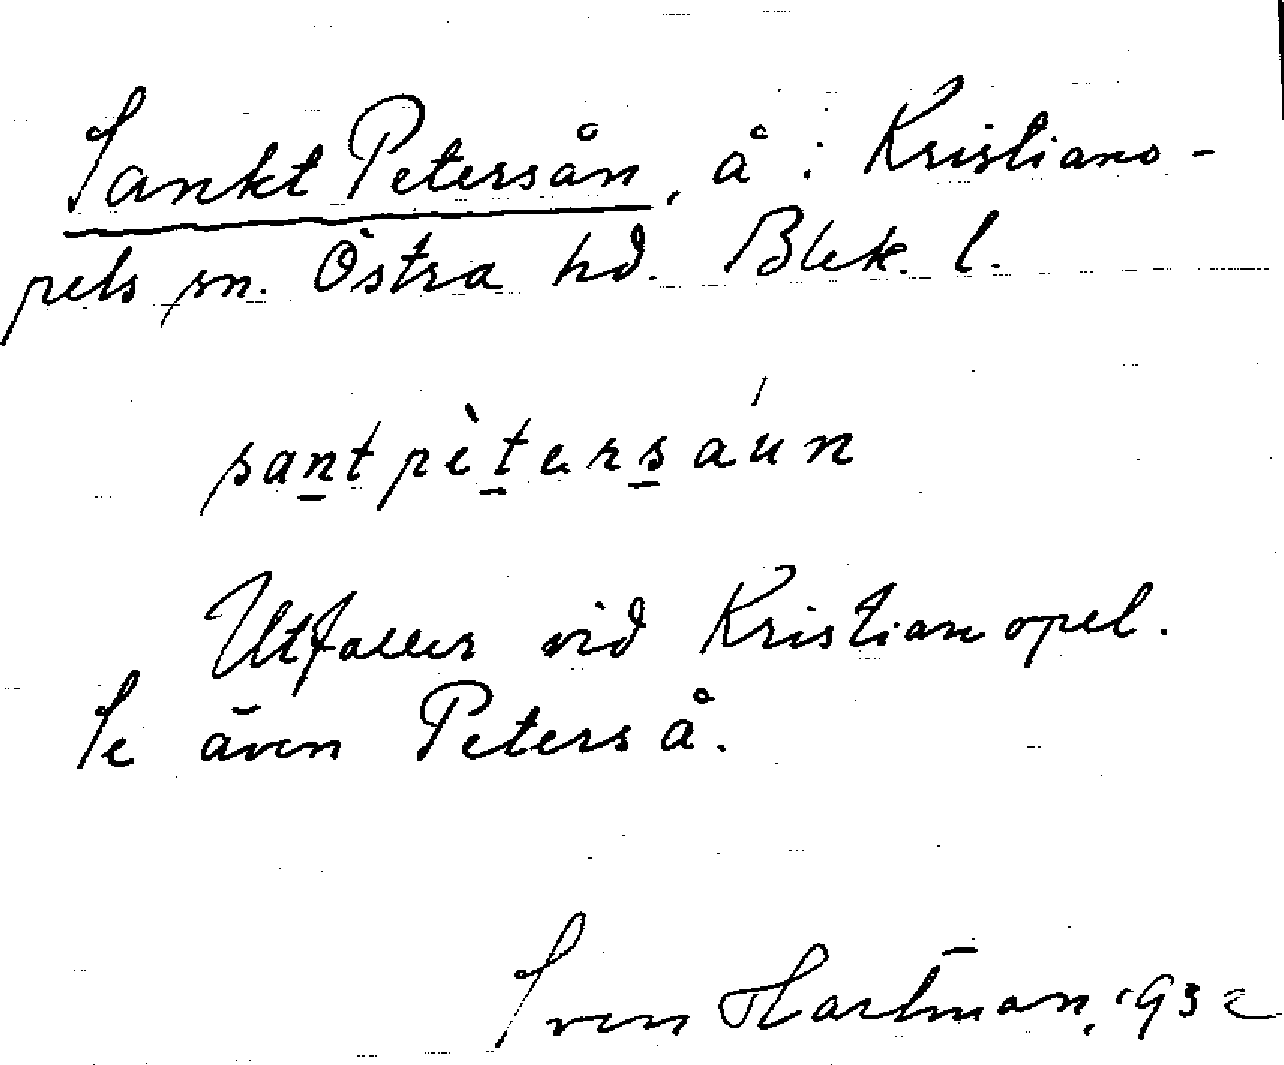 Sankt Petersån, å i Kristiano-
pels sn. Östra hd. Blek. l.
santpètersáun
Utfaller vid Kristianopel.
Se även Peterså.
Sven Hartman, 1932